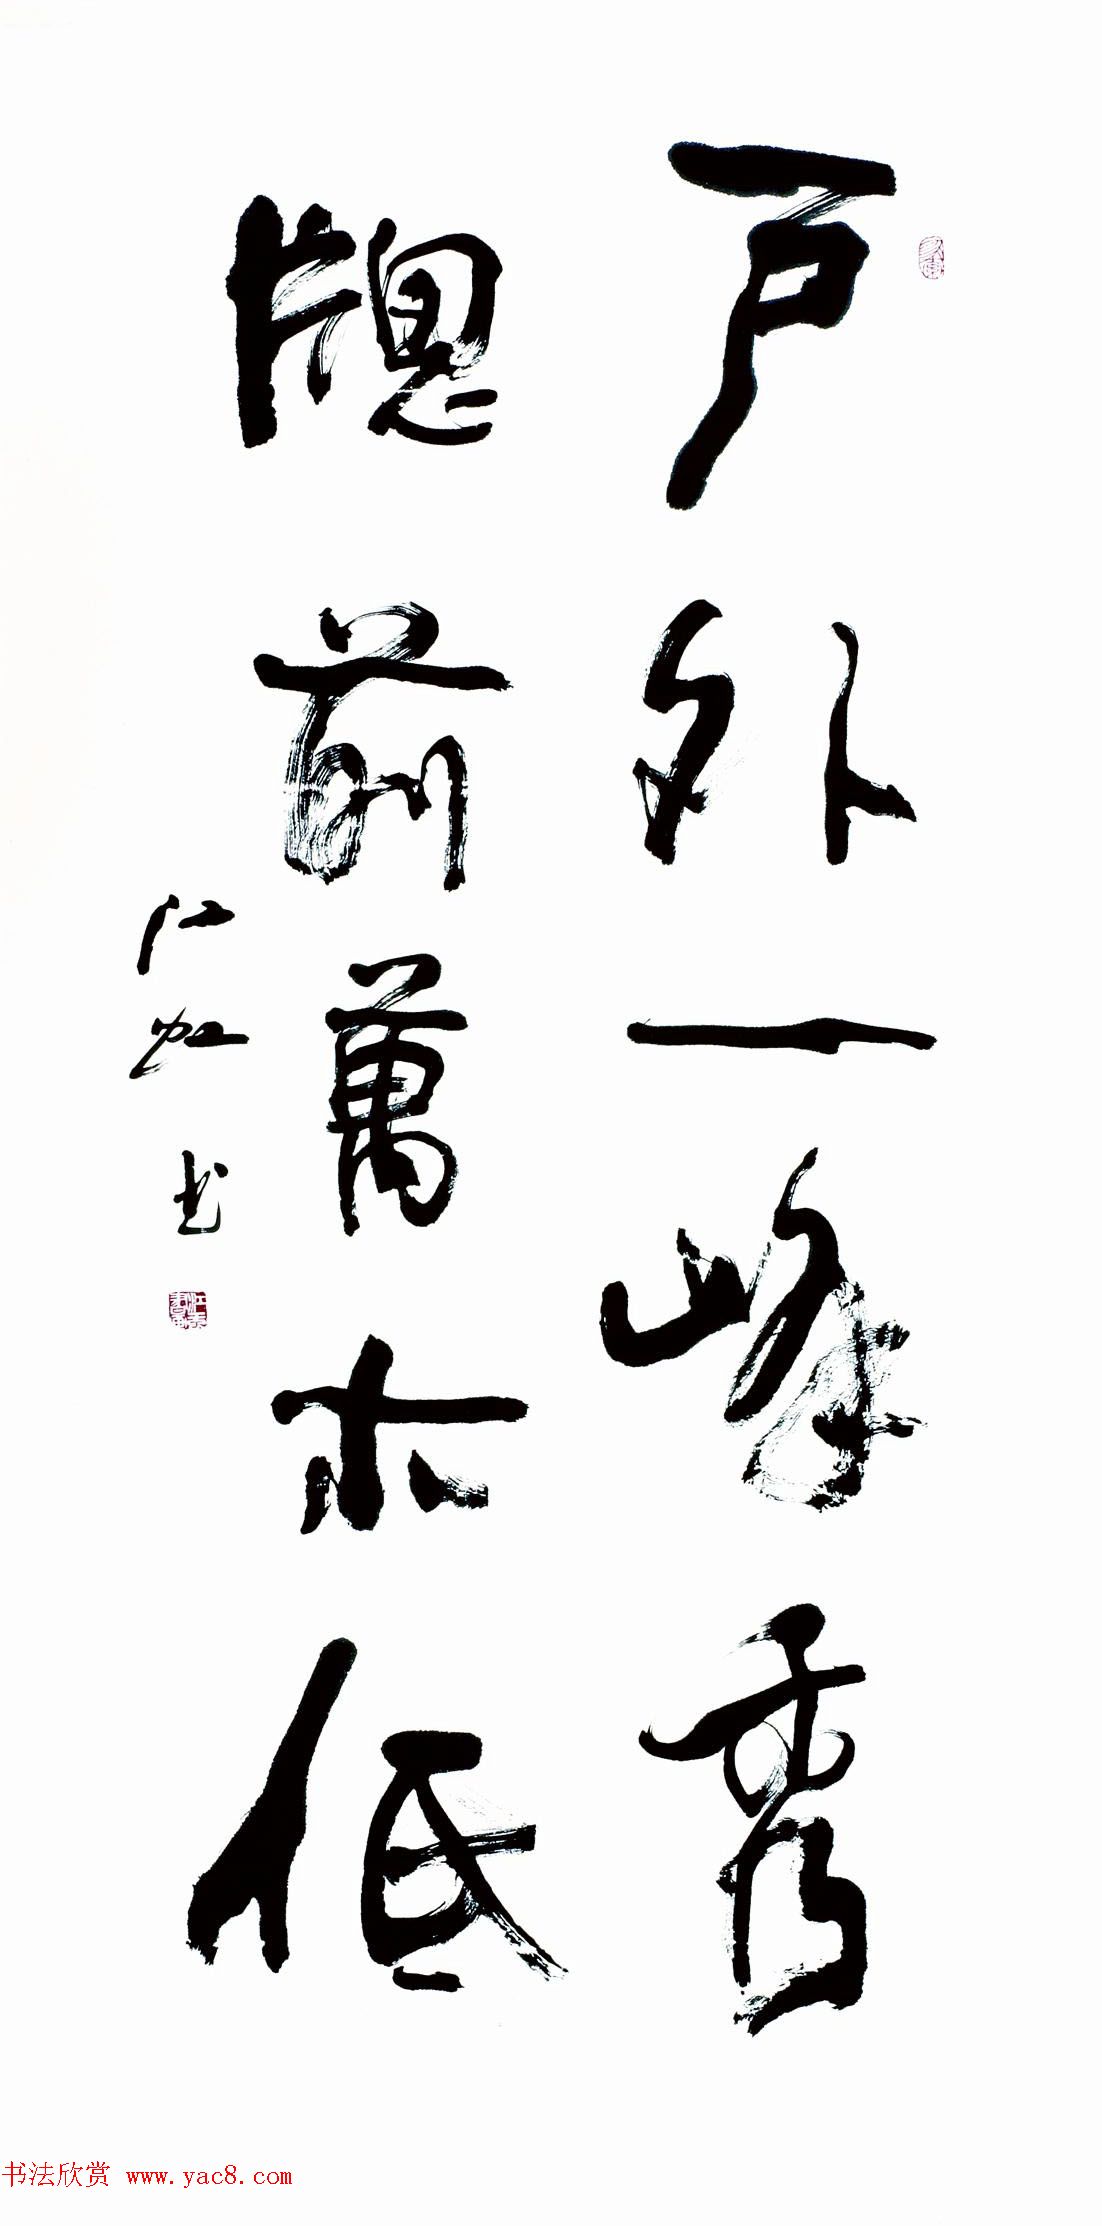 户外一峰秀
牕前萬木低
仁虹书
书法欣赏 www.yac8.com